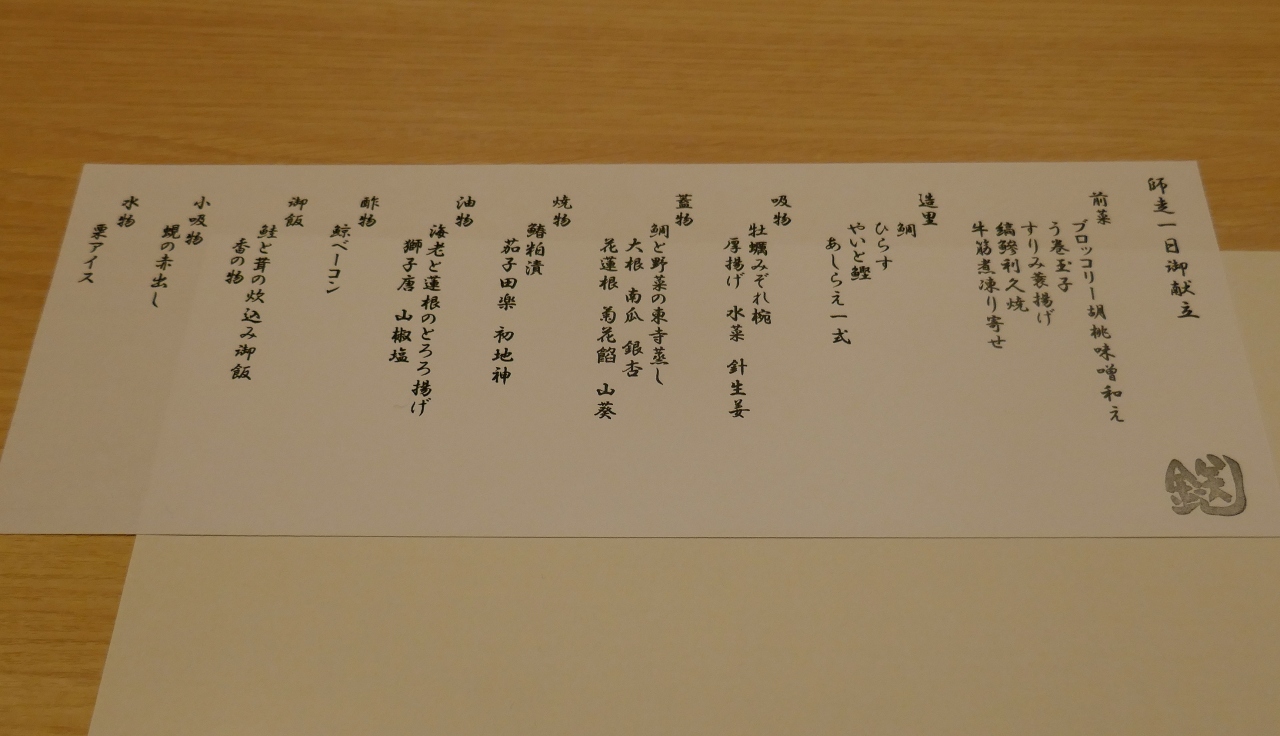 師走一日御献立
前菜
ブロッコリー胡桃味噌和え
う巻玉子
すりみ蓑揚げ
縞鯵利久焼
牛筋煮凍り寄せ
造里
鯛
ひらす
やいと鰹
あしらえ一式
吸物
牡蠣みぞれ椀
厚揚げ 水菜 針生姜
蓋物
鯛と野菜の東寺蒸し
大根 南瓜 銀杏
花蓮根 菊花餡 山葵
焼物
鰆粕漬
茄子田楽 初地神
油物
海老と蓮根のとろろ揚げ
獅子唐 山椒塩
酢物
鯨ベーコン
御飯
鮭と茸の炊込み御飯
香の物
小吸物
蜆の赤出し
水物
栗アイス